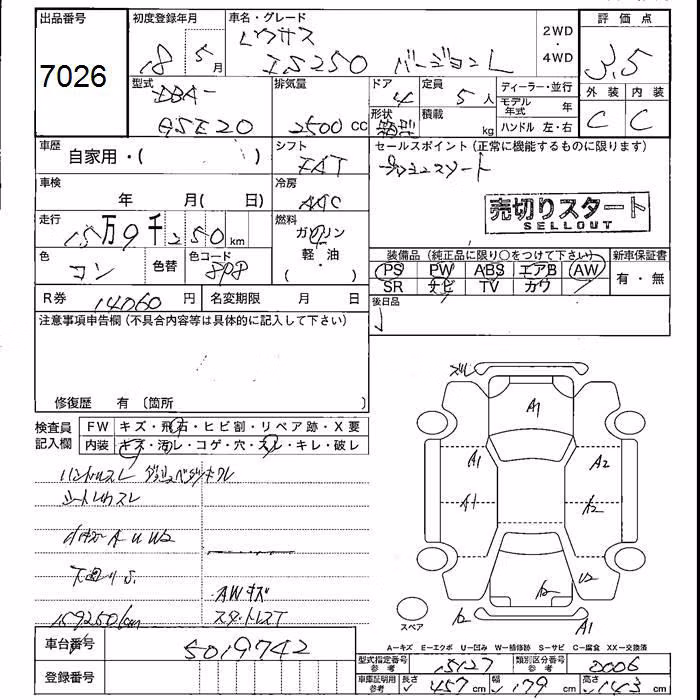 出品番号 初度登録年月 車名・グレード 評価点
7026 18年 5月 レクサス 2WD・4WD 3.5
IS250 バージョンL
外装 内装
型式 排気量 ドア 定員 ディーラー・並行
DBA- 4 5人 モデル年式 年 C C
GSE20 2500cc 形状 積載 kg ハンドル 左・右
車歴 シフト セールスポイント(正常に機能するものに限ります)
自家用・( ) FAT
車検 冷房
年 月( 日) AAC 売切りスタート
SELLOUT
走行 燃料
15万9千250km ガソリン
軽・油 装備品(純正品に限り○をつけて下さい) 新車保証書
色 色替 色コード PS PW ABS エアB AW 有・無
コン 8P8 SR ナビ TV カワ
R券 14060円 名変期限 月 日 後日品
注意事項申告欄(不具合内容等は具体的に記入して下さい)
修復歴 有 〔箇所 〕
検査員記入欄 FW キズ・飛石・ヒビ割・リペア跡・X要
内装 キズ・汚レ・コゲ・穴・スレ・キレ・破レ
ズレ
A1
A1 A2
A1 A2
ハンドルスレ
シートスレ
A U W2
下廻りS
AWキズ
159250km スタットレスT
A2 U2
A2 A1
スペア
A=キズ E=エクボ U=凹み W=補修跡 S=サビ C=腐食 XX=交換済
車台番号 5019742
登録番号
型式指定番号参考 15127 類別区分番号参考 0006
車庫証明用参考 長さ 457cm 幅 179cm 高さ 143cm